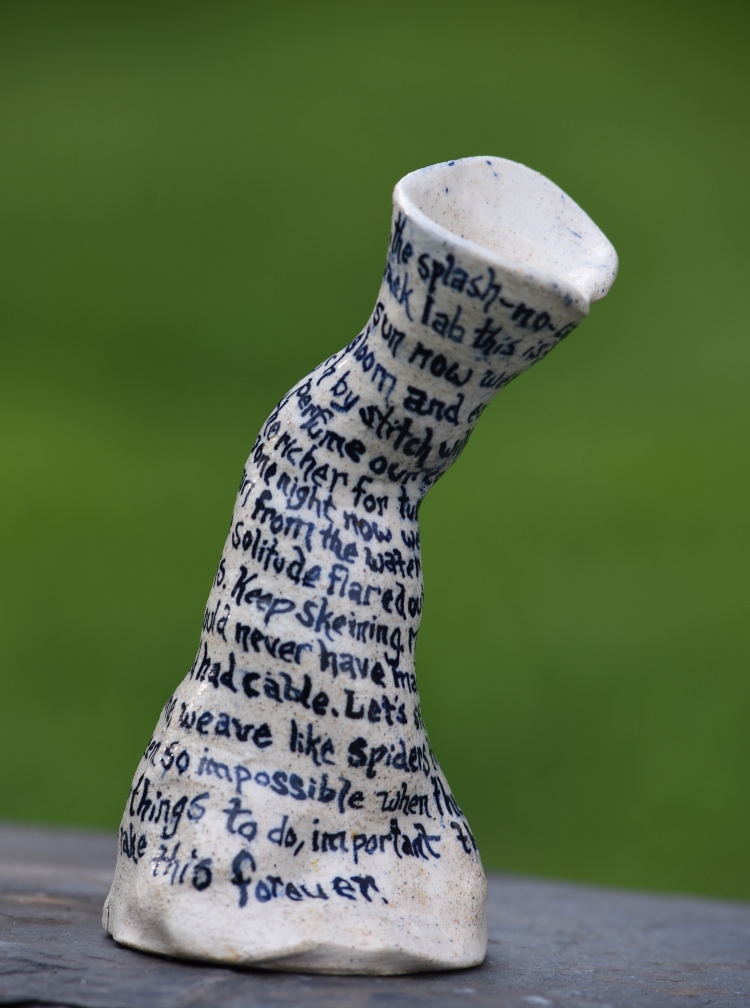 the splash-no-
lab this is
sun now
bloom and
by stitch
perfume our
richer for
one night now we
from the water
solitude flared ou
s. Keep skeining.
uld never have ma
had cable. Let's
weave like spiders
so impossible when the
things to do, important th
ake this forever.